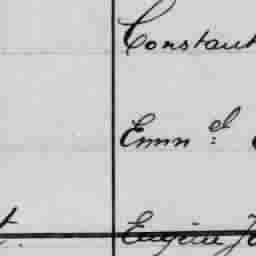 Constant
Emn^el
t. Eugène